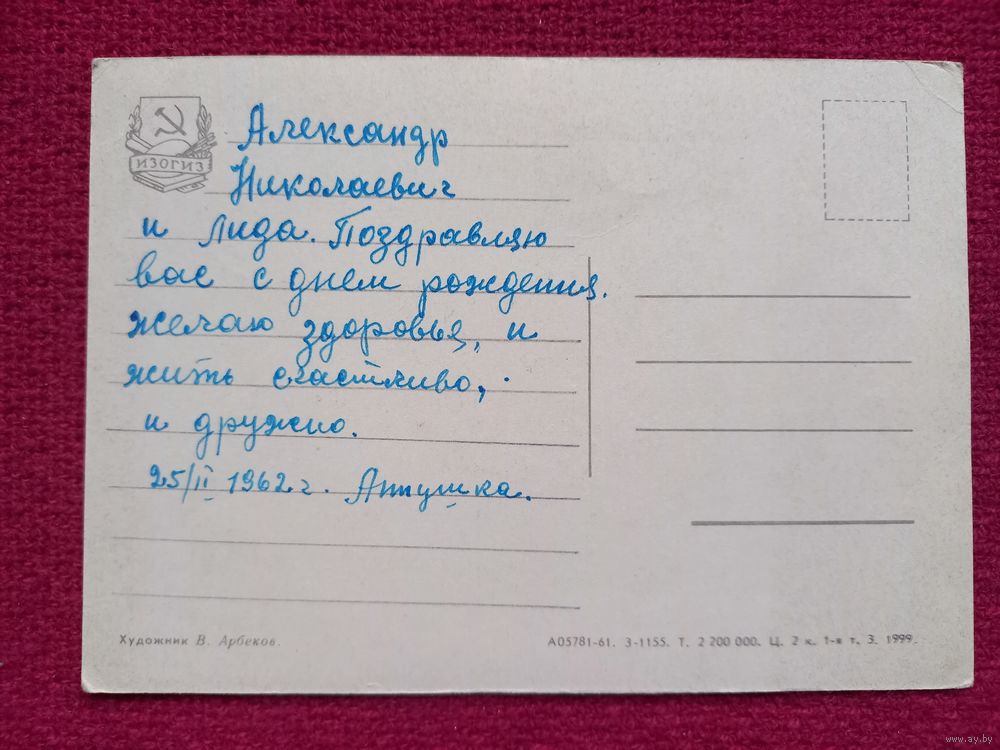 ИЗОГИЗ
Александр
Николаевич
и Лида. Поздравляю
вас с днем рождения.
желаю здоровья, и
жить счастливо,
и дружно.
25/II 1962 г. Аннушка.
Художник В. Арбеков.
А05781-61. З-1155. Т. 2 200 000. Ц. 2 к. 1-я т. З. 1999.
www.ay.by